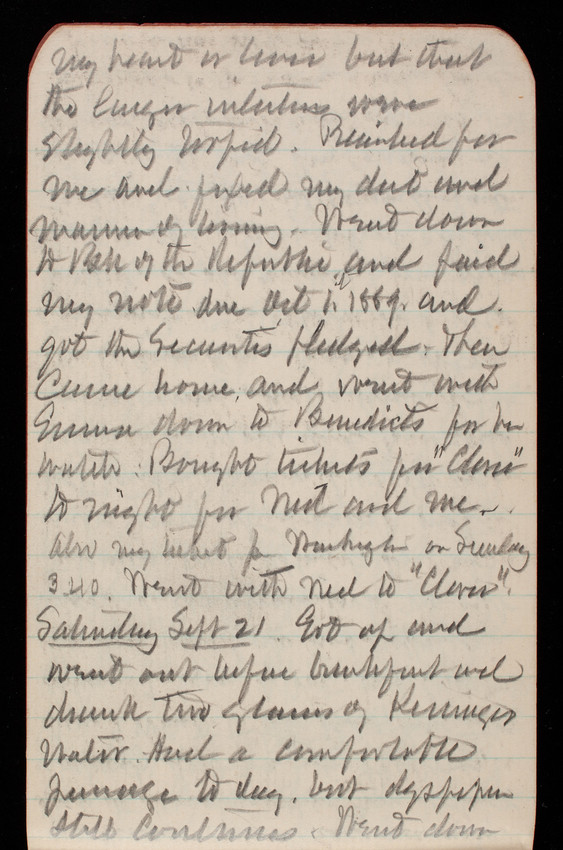 my heart or liver but that
the larger intestines were
slightly torpid. Prescribed for
me and fixed my diet and
manner of living. Went down
to Bk of the Republic and paid
my note due Oct 1st 1889. and
got the Securities pledged. Then
Came home, and went with
Emma down to Benedicts for her
watch. Bought tickets for "Clover"
to night for Ned and me.
Also my ticket for Washington on Sunday
3.40. Went with Ned to "Clover".
Saturday Sept 21. Got up and
went out before breakfast and
drank two glasses of Kissinger
Water. Had a comfortable
passage to day, but dyspepsia
still continues. Went down